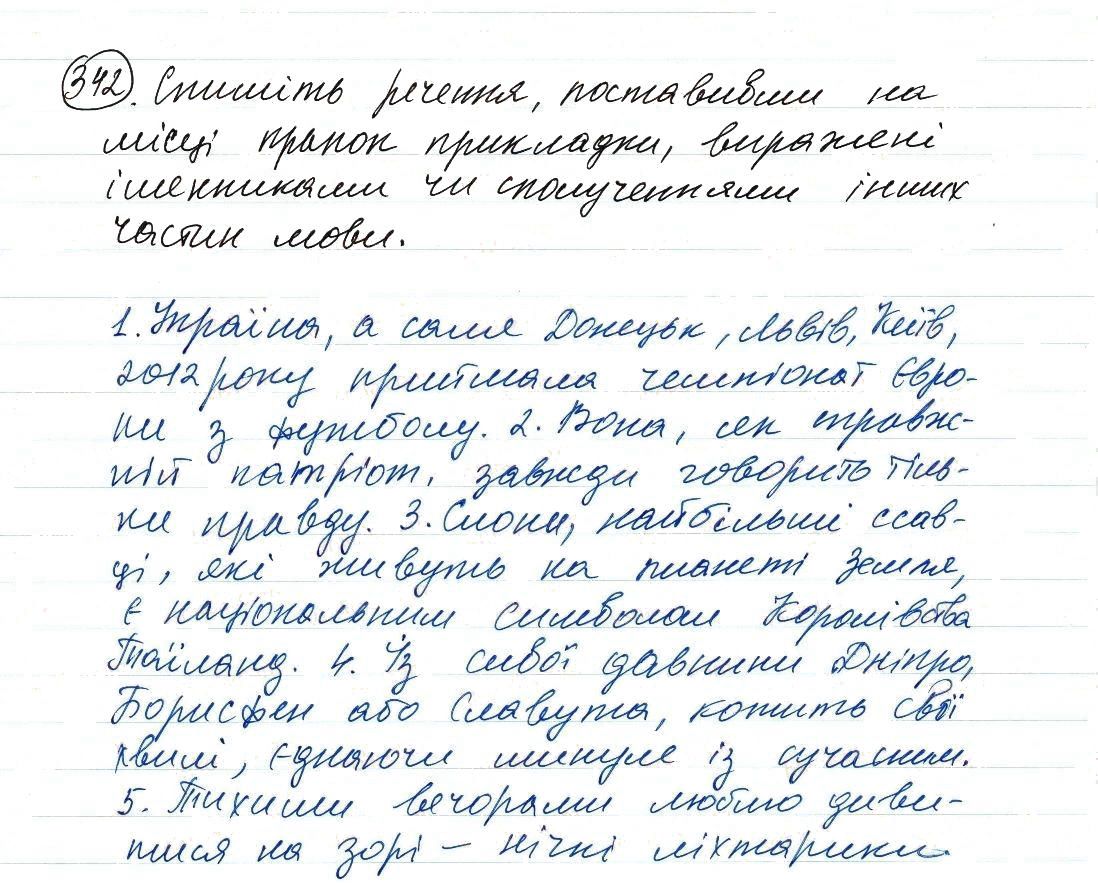 342. Спишіть речення, поставивши на
місці крапок прикладки, виражені
іменниками чи сполученнями інших
частин мови.
1. Україна, а саме Донецьк, Львів, Київ,
2012 року приймала чемпіонат Євро-
пи з футболу. 2. Вона, як справж-
ній патріот, завжди говорить тіль-
ки правду. 3. Слони, найбільші ссав-
ці, які живуть на планеті Земля,
є національним символом Королівства
Таїланд. 4. Із сивої давнини Дніпро,
Борисфен або Славута, котить свої
хвилі, єднаючи минуле із сучасним.
5. Тихими вечорами люблю диви-
тися на зорі – нічні ліхтарики.